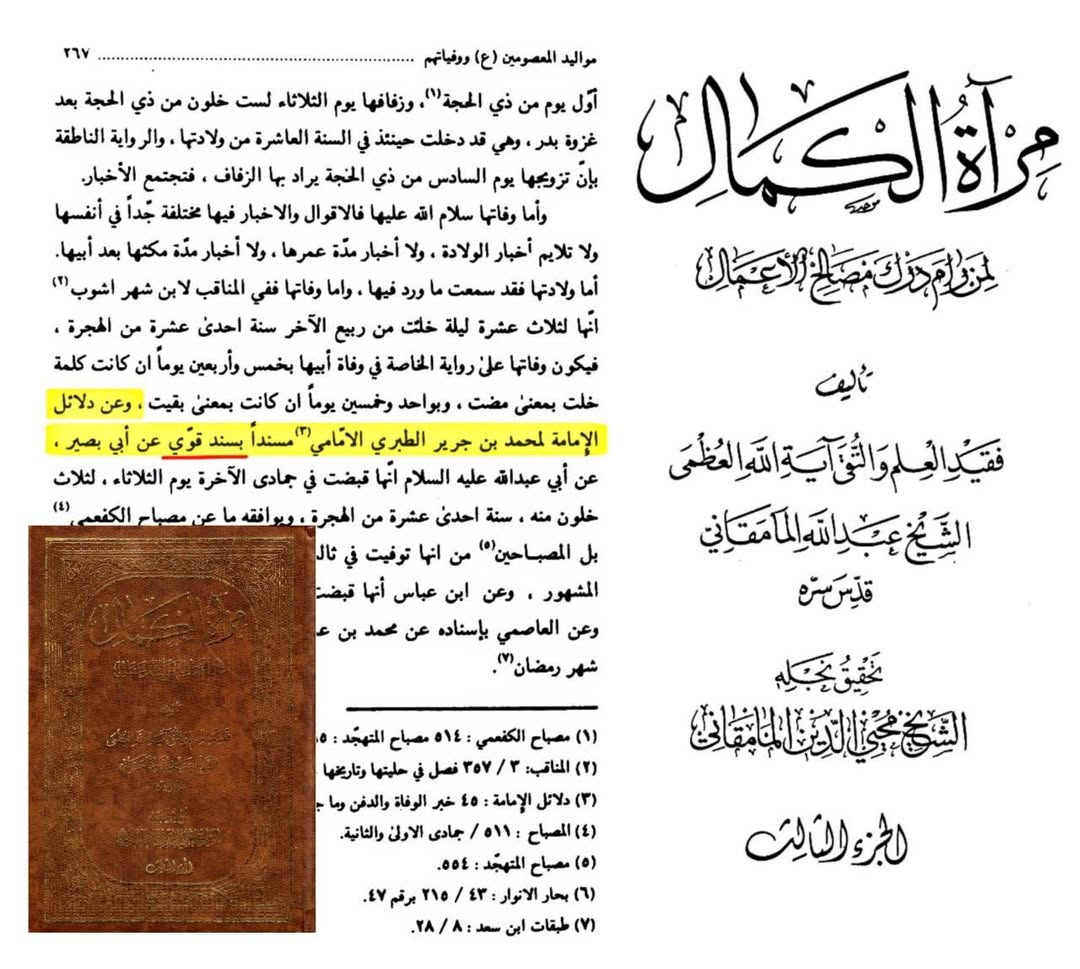 مواليد المعصومين (ع) ووفياتهم ........................................ ٢٦٧
أوّل يوم من ذي الحجة(١)، وزفافها يوم الثلاثاء لست خلون من ذي الحجة بعد
غزوة بدر ، وهي قد دخلت حينئذ في السنة العاشرة من ولادتها ، والرواية الناطقة
بإنّ تزويجها يوم السادس من ذي الحجة يراد بها الزفاف ، فتجتمع الأخبار.
وأما وفاتها سلام الله عليها فالاقوال والاخبار فيها مختلفة جّداً في أنفسها
ولا تلايم أخبار الولادة ، ولا أخبار مدّة عمرها ، ولا أخبار مدّة مكثها بعد أبيها.
أما ولادتها فقد سمعت ما ورد فيها ، واما وفاتها ففي المناقب لابن شهر اشوب(٢)
انّها لثلاث عشرة ليلة خلت من ربيع الآخر سنة احدىٰ عشرة من الهجرة ،
فيكون وفاتها علىٰ رواية الخاصة في وفاة أبيها بخمس وأربعين يوماً ان كانت كلمة
خلت بمعنىٰ مضت ، وبواحد وخمسين يوماً ان كانت بمعنىٰ بقيت ، وعن دلائل
الإمامة لمحمد بن جرير الطبري الامّامي(٣) مسنداً بسند قوّي عن أبي بصير ،
عن أبي عبدالله عليه السلام انّها قبضت في جمادى الآخرة يوم الثلاثاء ، لثلاث
خلون منه ، سنة احدىٰ عشرة من الهجرة ، ويوافقه ما عن مصباح الكفعمي(٤)
بل المصباحين(٥) من انها توفيت في
المشهور ، وعن ابن عباس أنها
وعن العاصمي بإسناده عن محمد بن
شهر رمضان(٧).
(١) مصباح الكفعمي : ٥١٤ مصباح المتهجّد :
(٢) المناقب: ٣ / ٣٥٧ فصل في حليتها وتاريخها
(٣) دلائل الإمامة : ٤٥ خبر الوفاة والدفن وما
(٤) المصباح : ٥١١ / جمادى الاولىٰ والثانية.
(٥) مصباح المتهجّد : ٥٥٤.
(٦) بحار الانوار : ٤٣ / ٢١٥ برقم ٤٧.
(٧) طبقات ابن سعد : ٨ / ٢٨.
مِرآةُ الكمال
لمن رام درك مصالح الأعمال
تأليف
فقيد العلم والتقى آية الله العظمى
الشيخ عبد الله المامقاني
قدّس سرّه
تحقيق نجله
الشيخ محيي الدين المامقاني
الجزء الثالث
مرآة الكمال